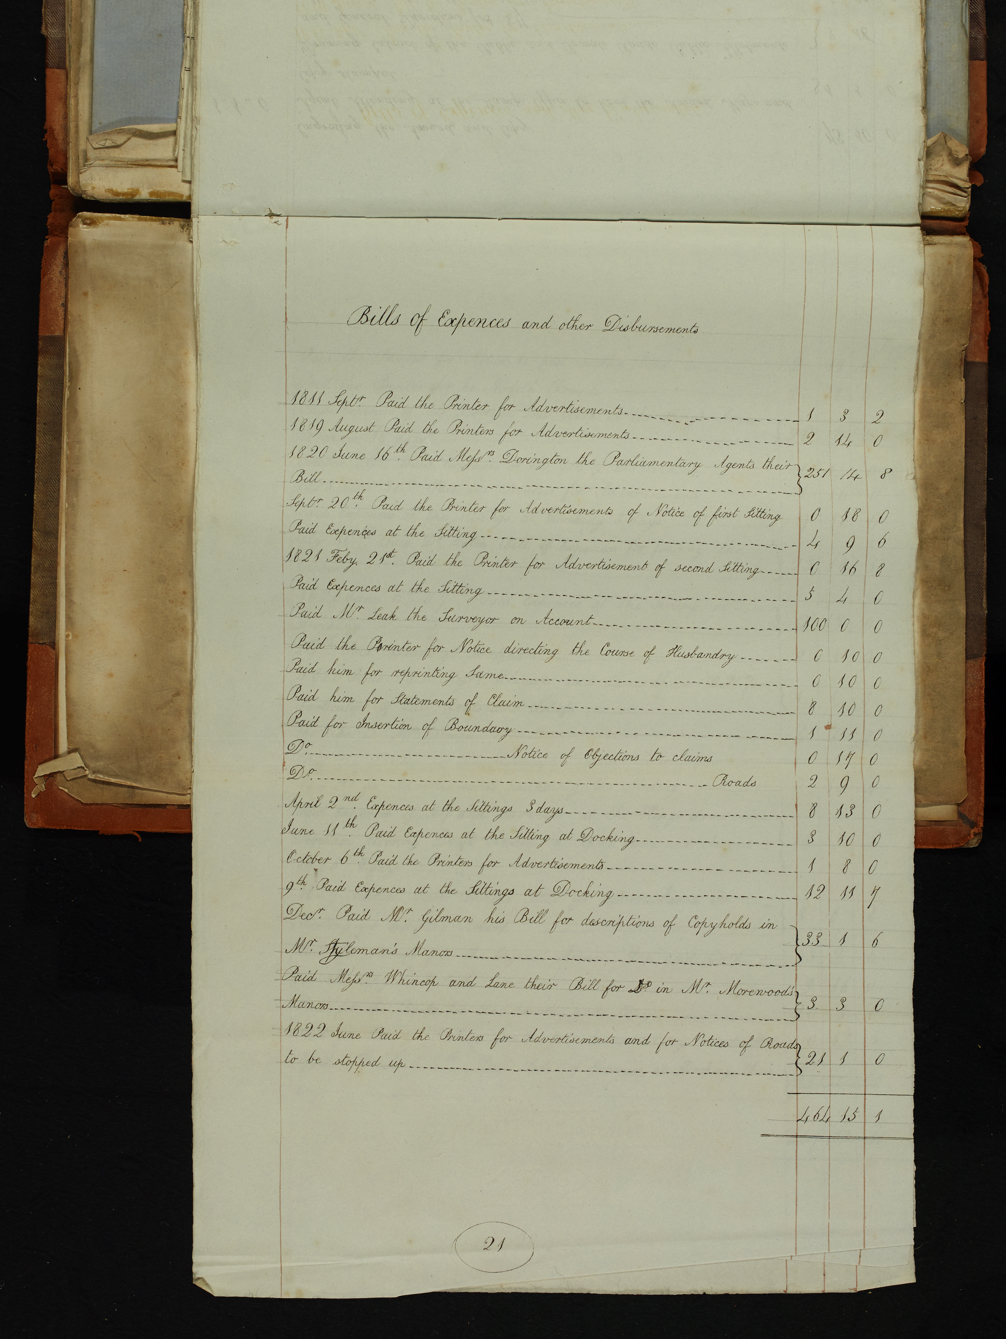 Bills of Expences and other Disbursements
1811 Septr. Paid the Printer for Advertisements 1 3 2
1819 August Paid the Printers for Advertisements 2 14 0
1820 June 16th Paid Messrs. Dorington the Parliamentary Agents their
Bill 251 14 8
Septr. 20th Paid the Printer for Advertisements of Notice of first Sitting 0 18 0
Paid Expences at the Sitting 4 9 6
1821 Feby. 21st. Paid the Printer for Advertisement of second Sitting 0 16 8
Paid Expences at the Sitting 5 4 0
Paid Mr. Leak the Surveyor on Account 100 0 0
Paid the Printer for Notice directing the Course of Husbandry 0 10 0
Paid him for reprinting Same 0 10 0
Paid him for Statements of Claim 8 10 0
Paid for Insertion of Boundary 1 11 0
Do. Notice of Objections to claims 0 17 0
Do. Roads 2 9 0
April 2nd Expences at the Sittings 3 days 8 13 0
June 11th Paid Expences at the Sitting at Docking 3 10 0
October 6th Paid the Printers for Advertisements 1 8 0
9th Paid Expences at the Sittings at Docking 12 11 7
Decr. Paid Mr. Gilman his Bill for discriptions of Copyholds in
Mr. Styleman's Manors 33 1 6
Paid Messrs Whincop and Lane their Bill for Do in Mr. Morewood's
Manors 3 3 0
1822 June Paid the Printers for Advertisements and for Notices of Roads
to be stopped up 21 1 0
464 15 1
21